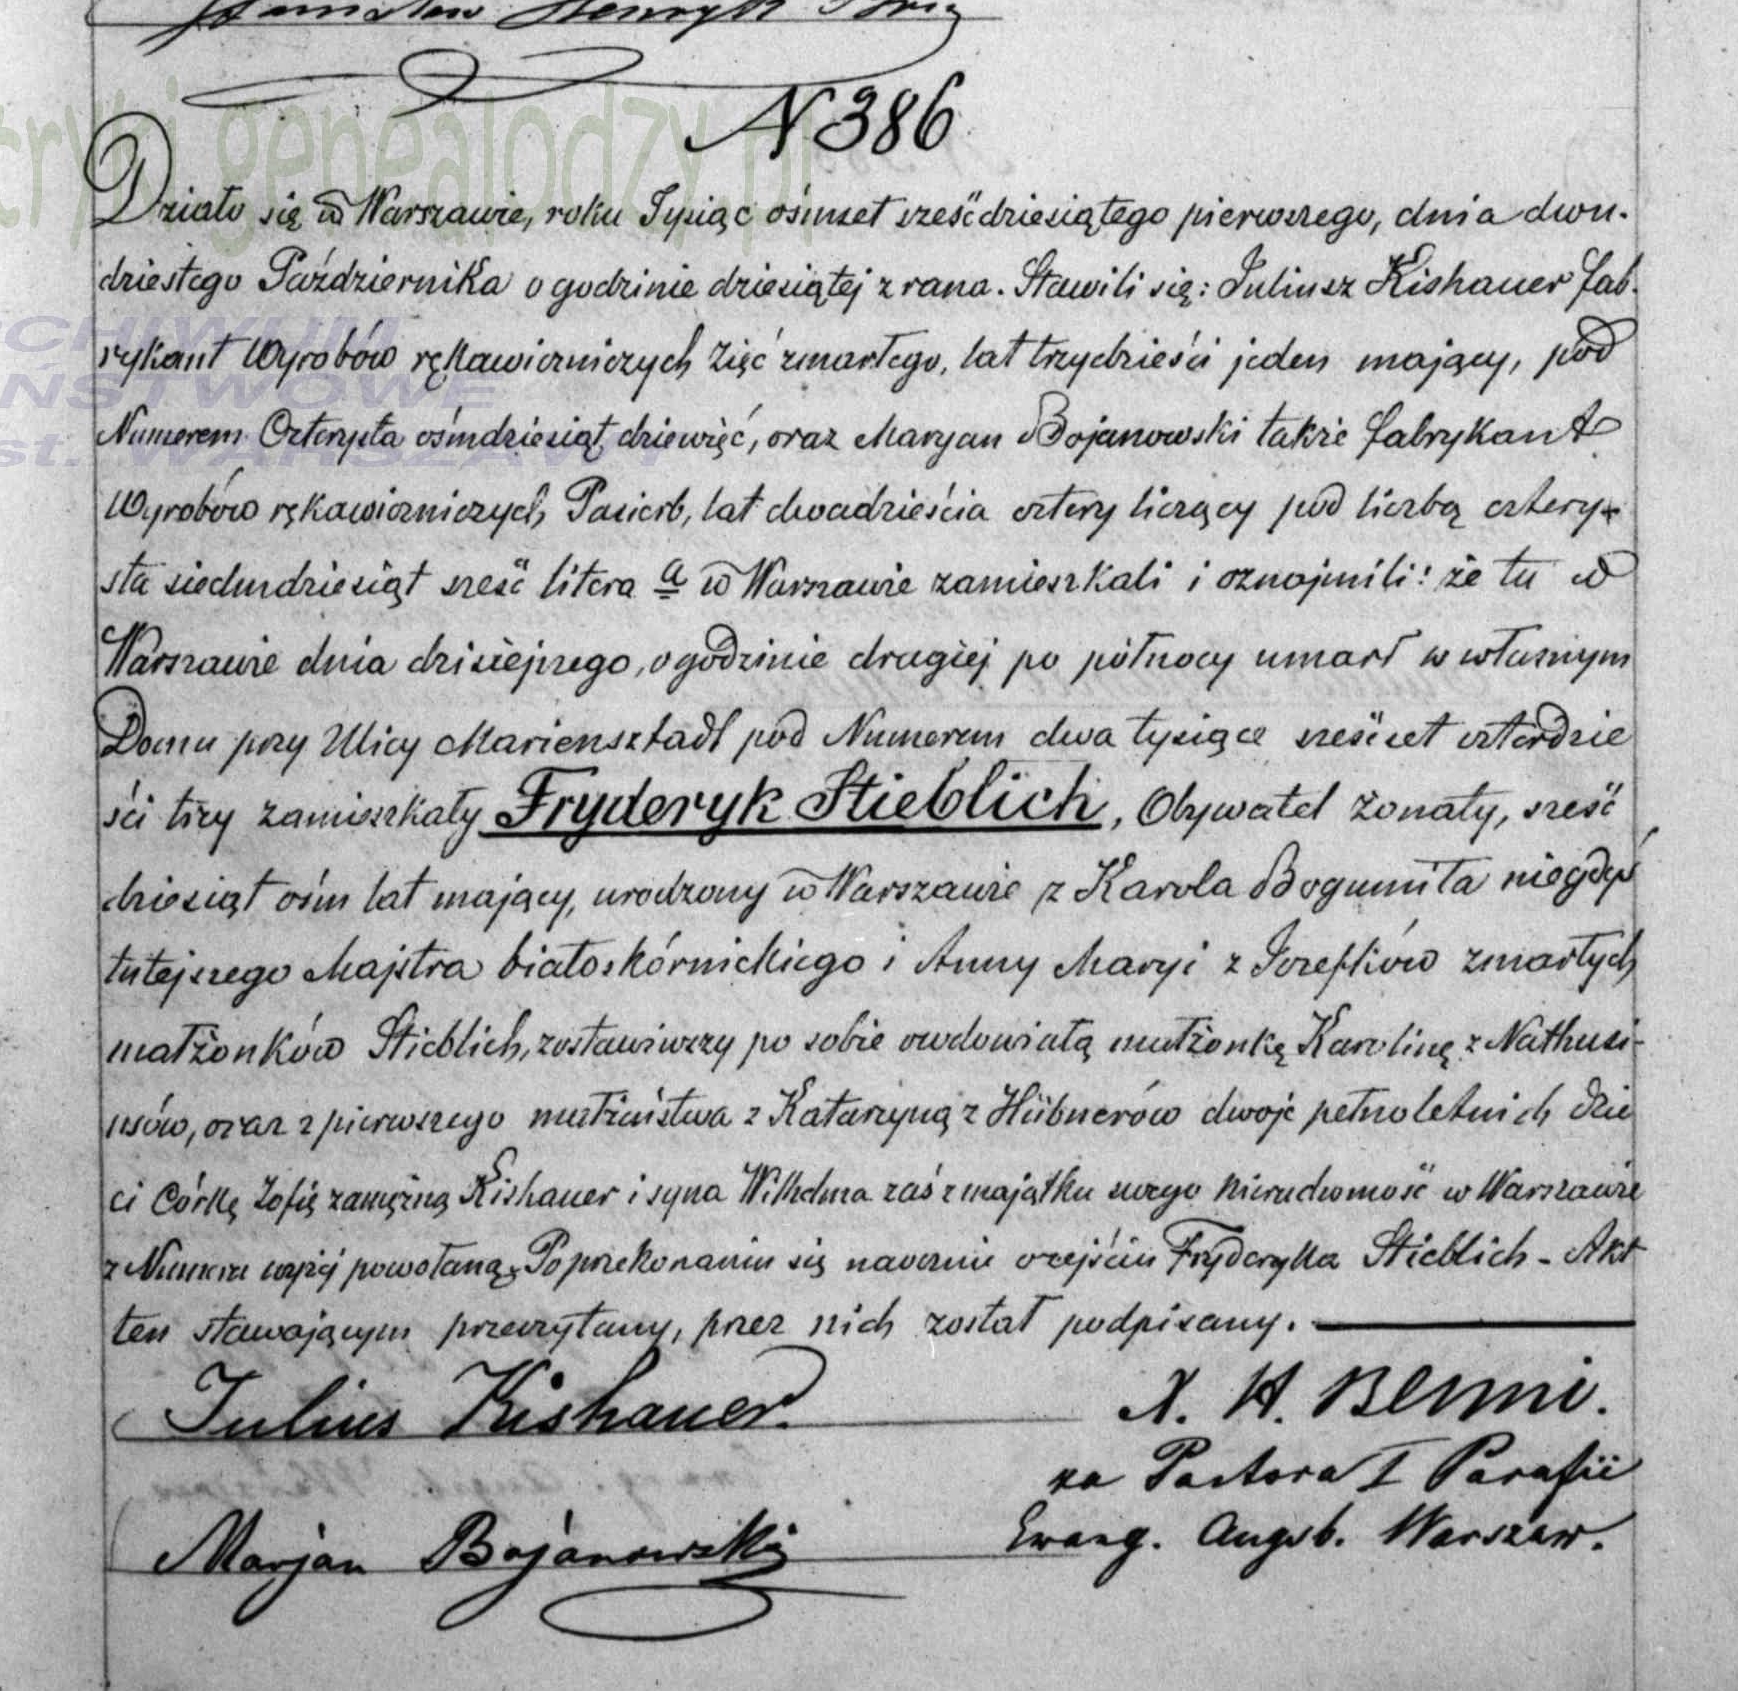 Stanisław Henryk
N 386
Działo się w Warszawie, roku Tysiąc ośmset sześćdziesiątego pierwszego, dnia dwu-
dziestego Października o godzinie dziesiątej z rana. Stawili się: Juliusz Kishauer fab-
rykant Wyrobów rękawiczniczych Zięć zmarłego, lat trzydzieści jeden mający, pod
Numerem Czterysta ośmdziesiąt dziewięć, oraz Maryan Bojanowski także fabrykant
Wyrobów rękawiczniczych, Pasierb, lat dwadzieścia cztery liczący pod liczbą cztery-
sta siedmdziesiąt sześć litera a w Warszawie zamieszkali i oznajmili: że tu w
Warszawie dnia dzisiejszego, o godzinie drugiej po północy umarł w własnym
Domu przy Ulicy Mariensztadt pod Numerem dwa tysiące sześćset czterdzie
ści trzy zamieszkały Fryderyk Stieblich, Obywatel żonaty, sześć
dziesiąt ośm lat mający, urodzony w Warszawie z Karola Bogumiła niegdyś
tutejszego Majstra białoskórnickiego i Anny Maryi z Jozefków zmarłych
małżonków Stieblich, zostawiwszy po sobie owdowiałą małżonkę Karolinę z Nathusi-
usów, oraz z pierwszego małżeństwa z Katarzyną z Hübnerów dwoje pełnoletnich dzie
ci Córkę Zofię zamężną Kishauer i syna Wilhelma zaś z majątku swego Nieruchomość w Warszawie
z Numeru wyżej powołaną. Po przekonaniu się naocznie o zejściu Fryderyka Stieblich - Akt
ten stawającym przeczytany, przez nich został podpisany.
Julius Kishauer.
X. H. Benni.
za Pastora I Parafii
Ewang. Augsb. Warszaw.
Marjan Bojanowski
genealodzy.pl